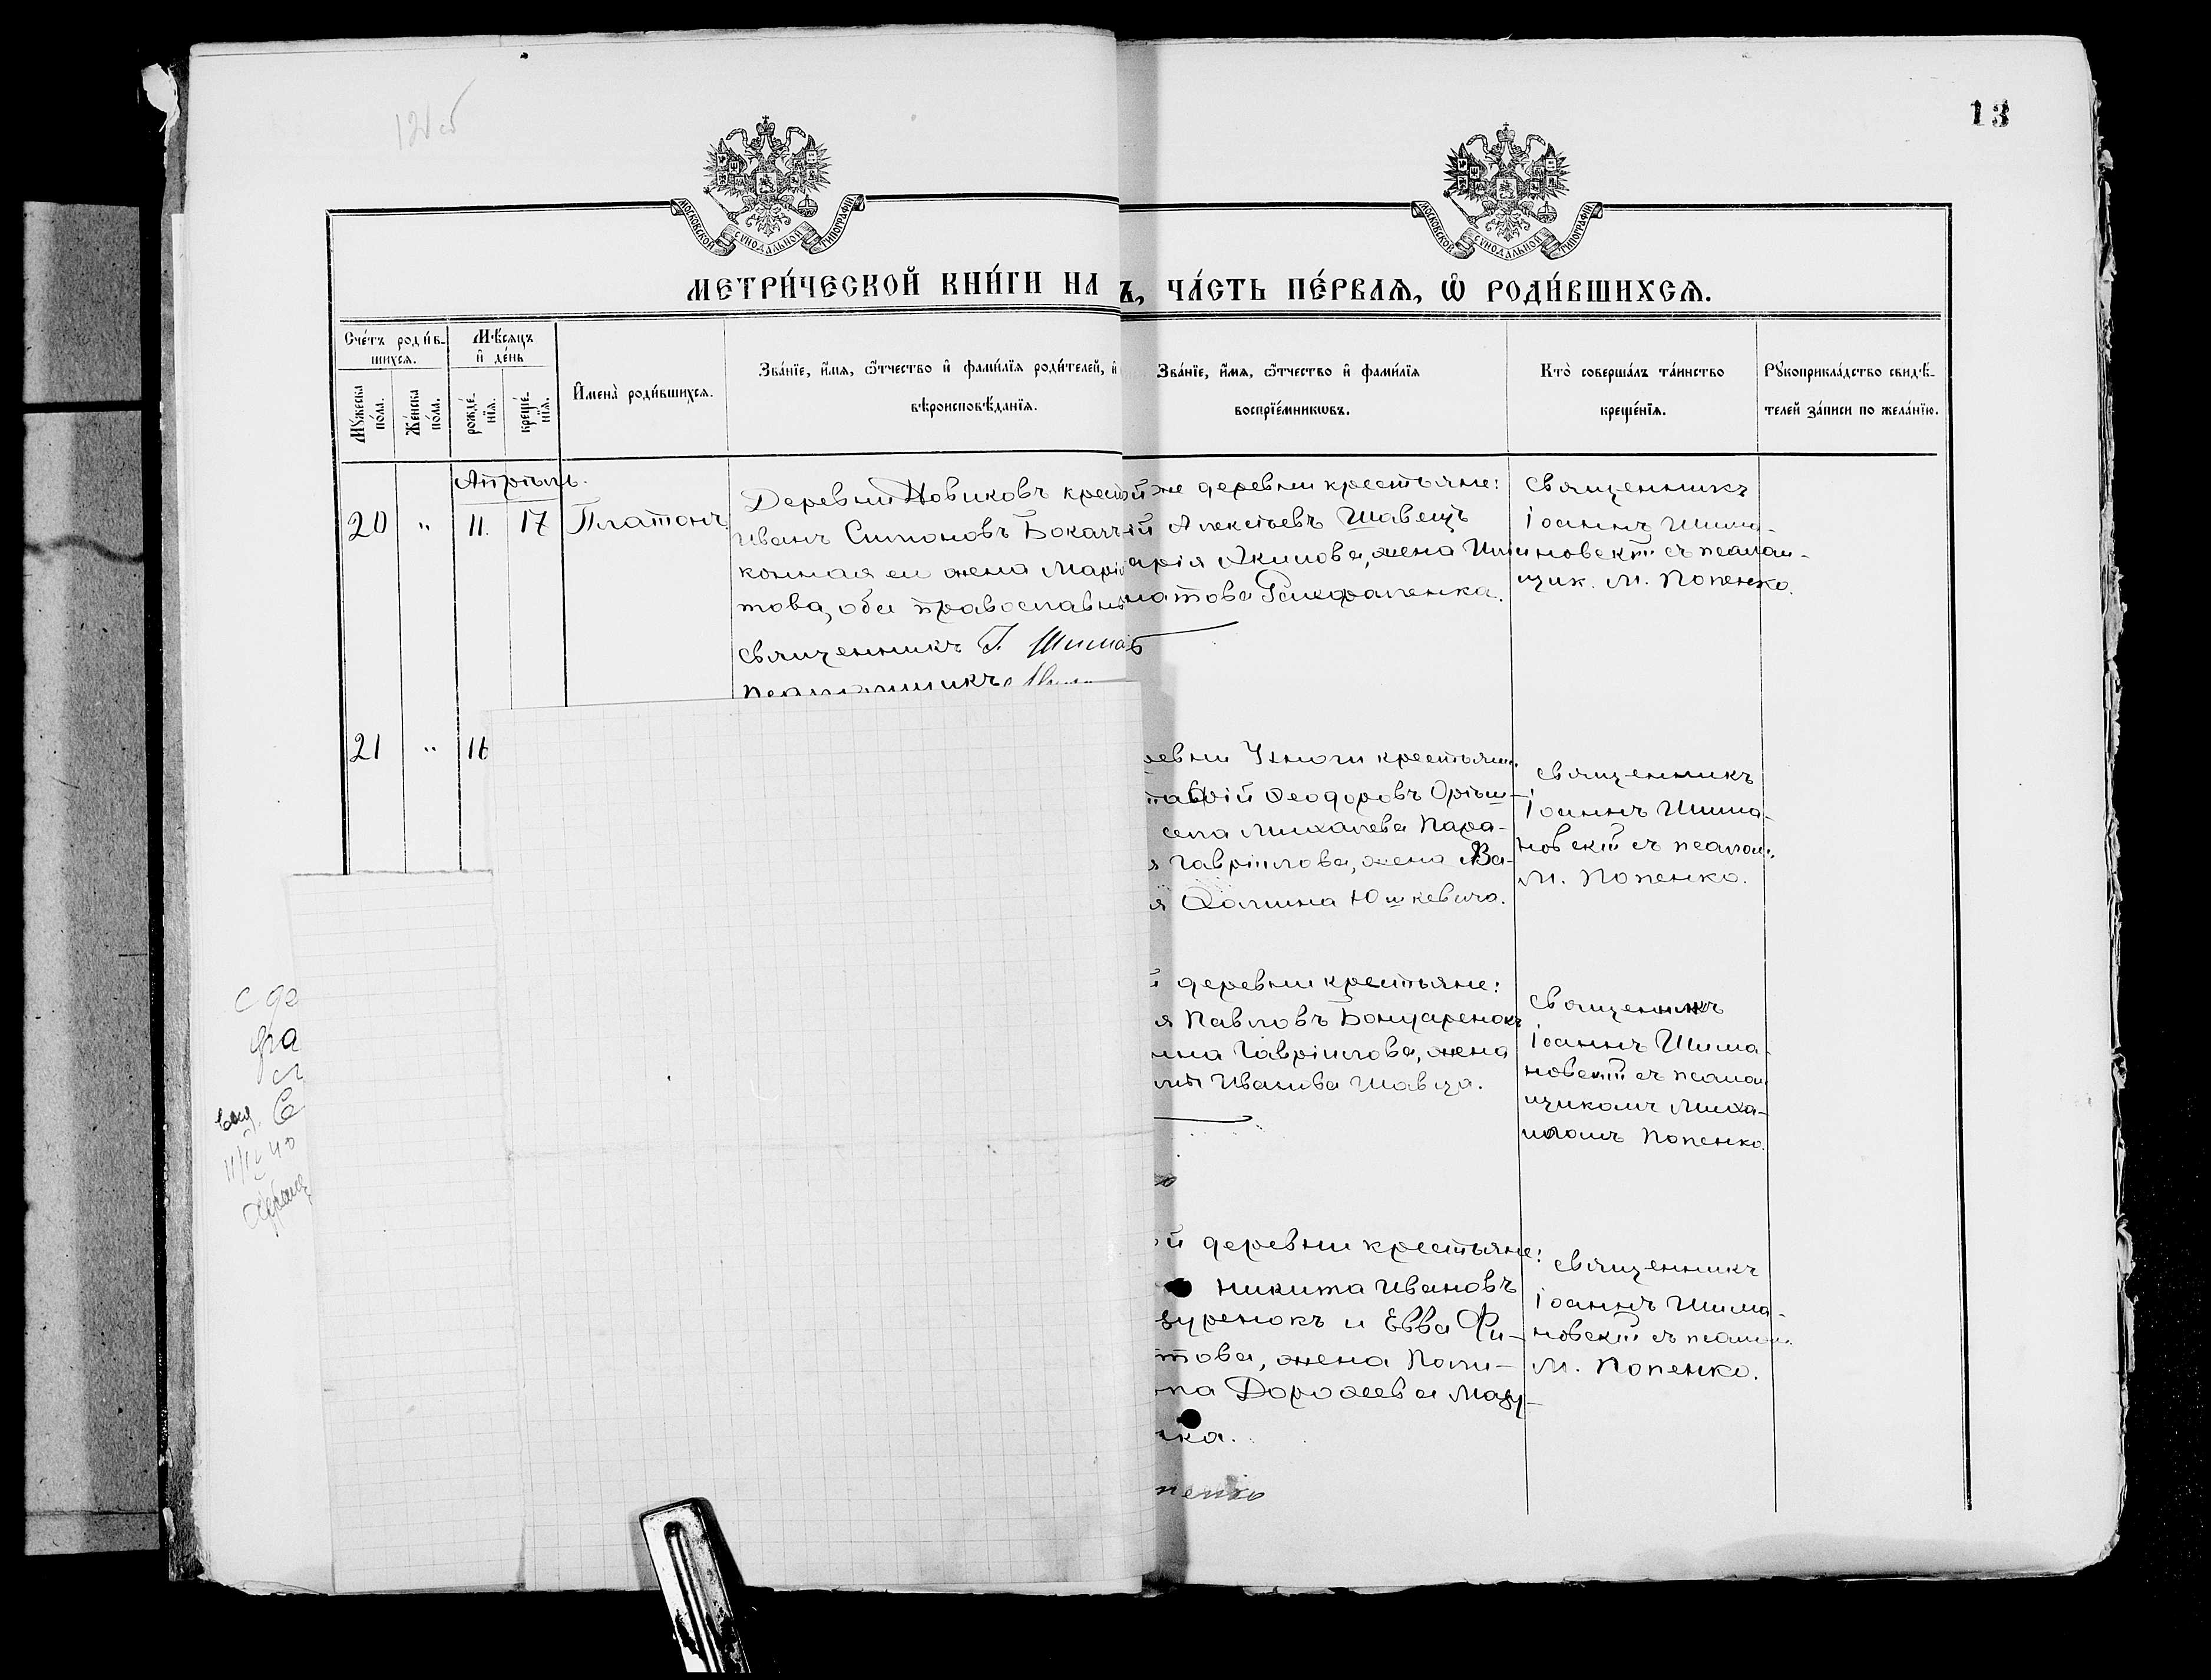 13
МОСКОВСКОЙ СѴНОДАЛЬНОЙ ТИПОГРАФІИ
МОСКОВСКОЙ СѴНОДАЛЬНОЙ ТИПОГРАФІИ
МЕТРИ́ЧЕСКОЙ КНИ́ГИ НА
Ъ, ЧА́СТЬ ПЕ́РВАѦ, Ѽ РОДИ́ВШИХСѦ.
Сче́тъ роди́в-
шихсѧ.
Мѣ́сѧцъ
и҆ де́нь
Мꙋ́жеска
по́ла.
Же́нска
по́ла.
рожде́-
нїѧ.
креще́-
нїѧ.
И҆мена̀ роди́вшихсѧ.
Зва́нїе, и҆́мѧ, ѻ҆́тчество и҆ фами́лїѧ роди́телей, и҆
вѣроисповѣ́данїѧ.
Зва́нїе, и҆́мѧ, ѻ҆́тчество и҆ фами́лїѧ
воспрїе́мникѡвъ.
Кто̀ соверша́лъ та́инство
креще́нїѧ.
Рꙋкоприкла́дство свидѣ́-
телей за́писи по жела́нїю.
Апрѣль.
20 " 11. 17 Платонъ
Деревни Новиковъ крест
Иванъ Симоновъ
конная его жена Марія
това, оба православны
Священникъ І. Шима
й же деревни крестьяне:
ій Алексѣевъ Шавецъ
арія Акимова, жена
Священникъ
Іоаннъ Шима-
новскій съ псалом-
щик. М. Попенко.
21 " 16
ревни крестьян.
Ѳеодоровъ
села Михалева Пара-
я Гавріилова, жена Ва-
я Ѳомина Юшкевича.
Священникъ
Іоаннъ Шима-
новскій съ псалом.
М. Попенко.
й деревни крестьяне:
я Павловъ Бондаренокъ
нна Гавріилова, жена
Иванова Шавца.
Священникъ
Іоаннъ Шима-
новскій съ псалом
щикомъ Миха-
иломъ Попенко.
ой деревни крестьяне:
Никита Ивановъ
зуренокъ и Евва Фи-
това, жена Поли-
па Дороѳеева Мазу-
нка.
пенко
Священникъ
Іоаннъ Шима-
новскій съ псалом.
М. Попенко.